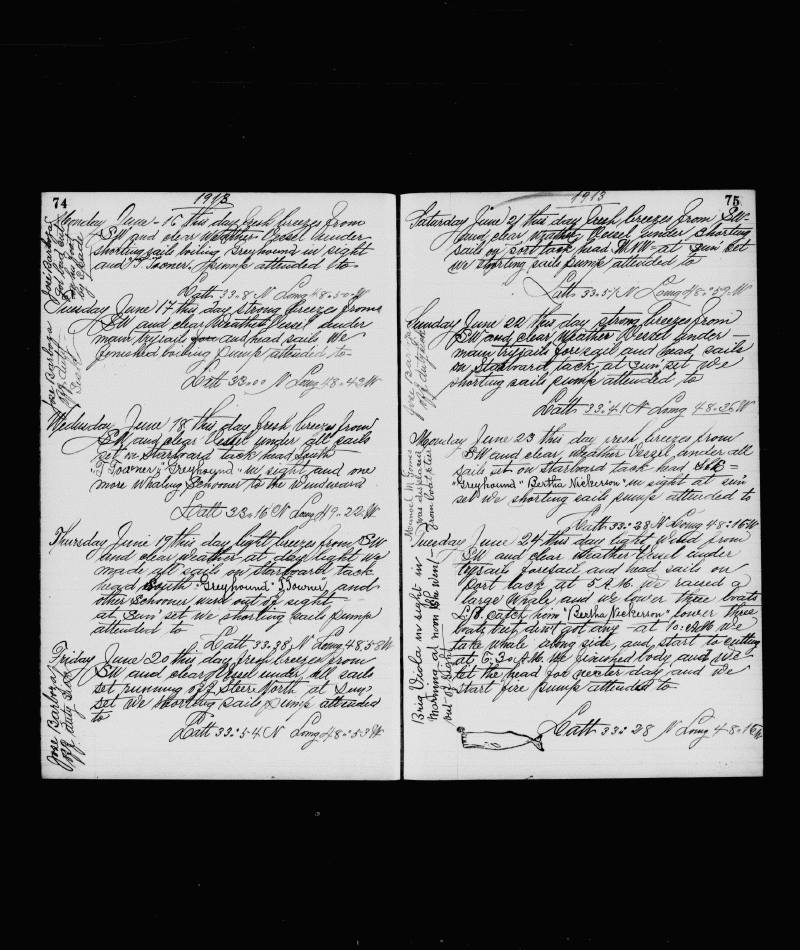 74
1913
Monday June 16 this day fresh breezes from
SW and clear weather Vessel under
shorting sails boiling Greyhound in sight
and T. Towner pump attended to
Latt 33.8 N Long 48.50 W
Tuesday June 17 this day strong breezes from
SW and clear weather Vessel under
main trysail fore and head sails We
finished boiling pump attended to
Latt 33.00 N Long 48.43 W
Wednesday June 18 this day fresh breezes from
SW and clear Vessel under all sails
set on Starboard tack head South
"T Towner" "Greyhound" in sight and one
more Whaling Schooner to the windward
Latt 33.16 N Long 49.22 W
Thursday June 19 this day light breezes from SW
and clear weather at day light We
made all sails on starboard tack
head South "Greyhound" "T Towner" and
other schooner went out of sight
at Sun set we shorting sails pump
attended to
Latt 33.38 N Long 48.58 W
Friday June 20 this day fresh breezes from
SW and clear Vessel under all sails
set running off Steer North at Sun
set We shorting sails pump attended
to
Latt 33:54 N Long 48:53 W
Jose Barboza
off duty
Jose Barboza
off duty
Jose Barboza
off duty Sick
75
1913
Saturday June 21 this day fresh breezes from SW
and clear weather Vessel under shorting
sails on port tack head WNW at sun set
we shorting sails pump attended to
Latt 33.57 N Long 48:59 W
Sunday June 22 this day strong breezes from
SW and clear weather Vessel under
main trysails foresail and head sails
on Starboard tack at sun set We
shorting sails pump attended to
Latt 33:41 N Long 48.36 W
Monday June 23 this day fresh breezes from
SW and clear weather Vessel under all
sails set on starboard tack head
"Greyhound" "Bertha Nickerson" in sight at sun
set we shorting sails pump attended to
Latt 33:38 N Long 48:16 W
Tuesday June 24 this day light Wind from
SW and clear weather Vessel under
trysail foresail and head sails on
Port tack at 5 A.M. We raised a
large Whale and we lower three boats
L.B. catch him "Bertha Nickerson" lower three
boats but dont got any at 10: AM We
take whale along side and start to cutting
at 6:30 P.M. We finished body and We
let the head for nexter day and we
start fire pump attended to
Latt 33:28 N Long 48.16 W
Jose Barboza
off duty Sick
Manuel M Gomes
was displaced
from boatstier
Brig Viola in sight in
morning at noon she went
out of sight